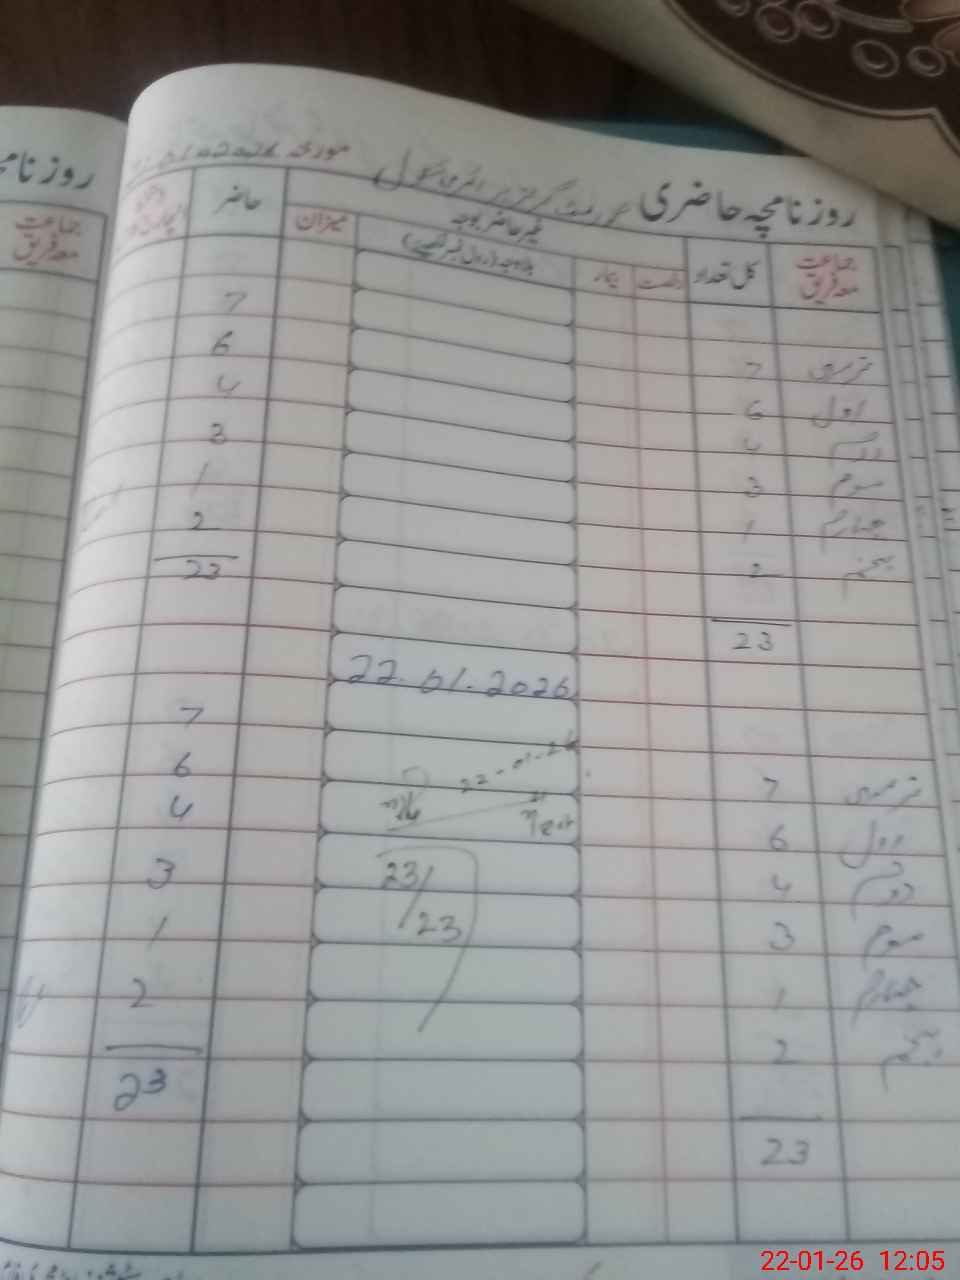 روزنامچہ حاضری گورنمنٹ گرلز پرائمری سکول مورخہ
جماعت معہ فریق کل تعداد رخصت بیمار غیر حاضر بوجہ میزان حاضر
بلاوجہ (رول نمبر لکھیے)
نرسری 7 7
اول 6 6
دوم 4 4
سوم 3 3
چہارم 1 1
پنجم 2 2
23 23
22.01.2026
نرسری 7 7
اول 6 6
دوم 4 4
سوم 3 3
چہارم 1 1
پنجم 2 2
23 23
22-01-26
23/23
روزنامچہ
جماعت معہ فریق
22-01-26 12:05